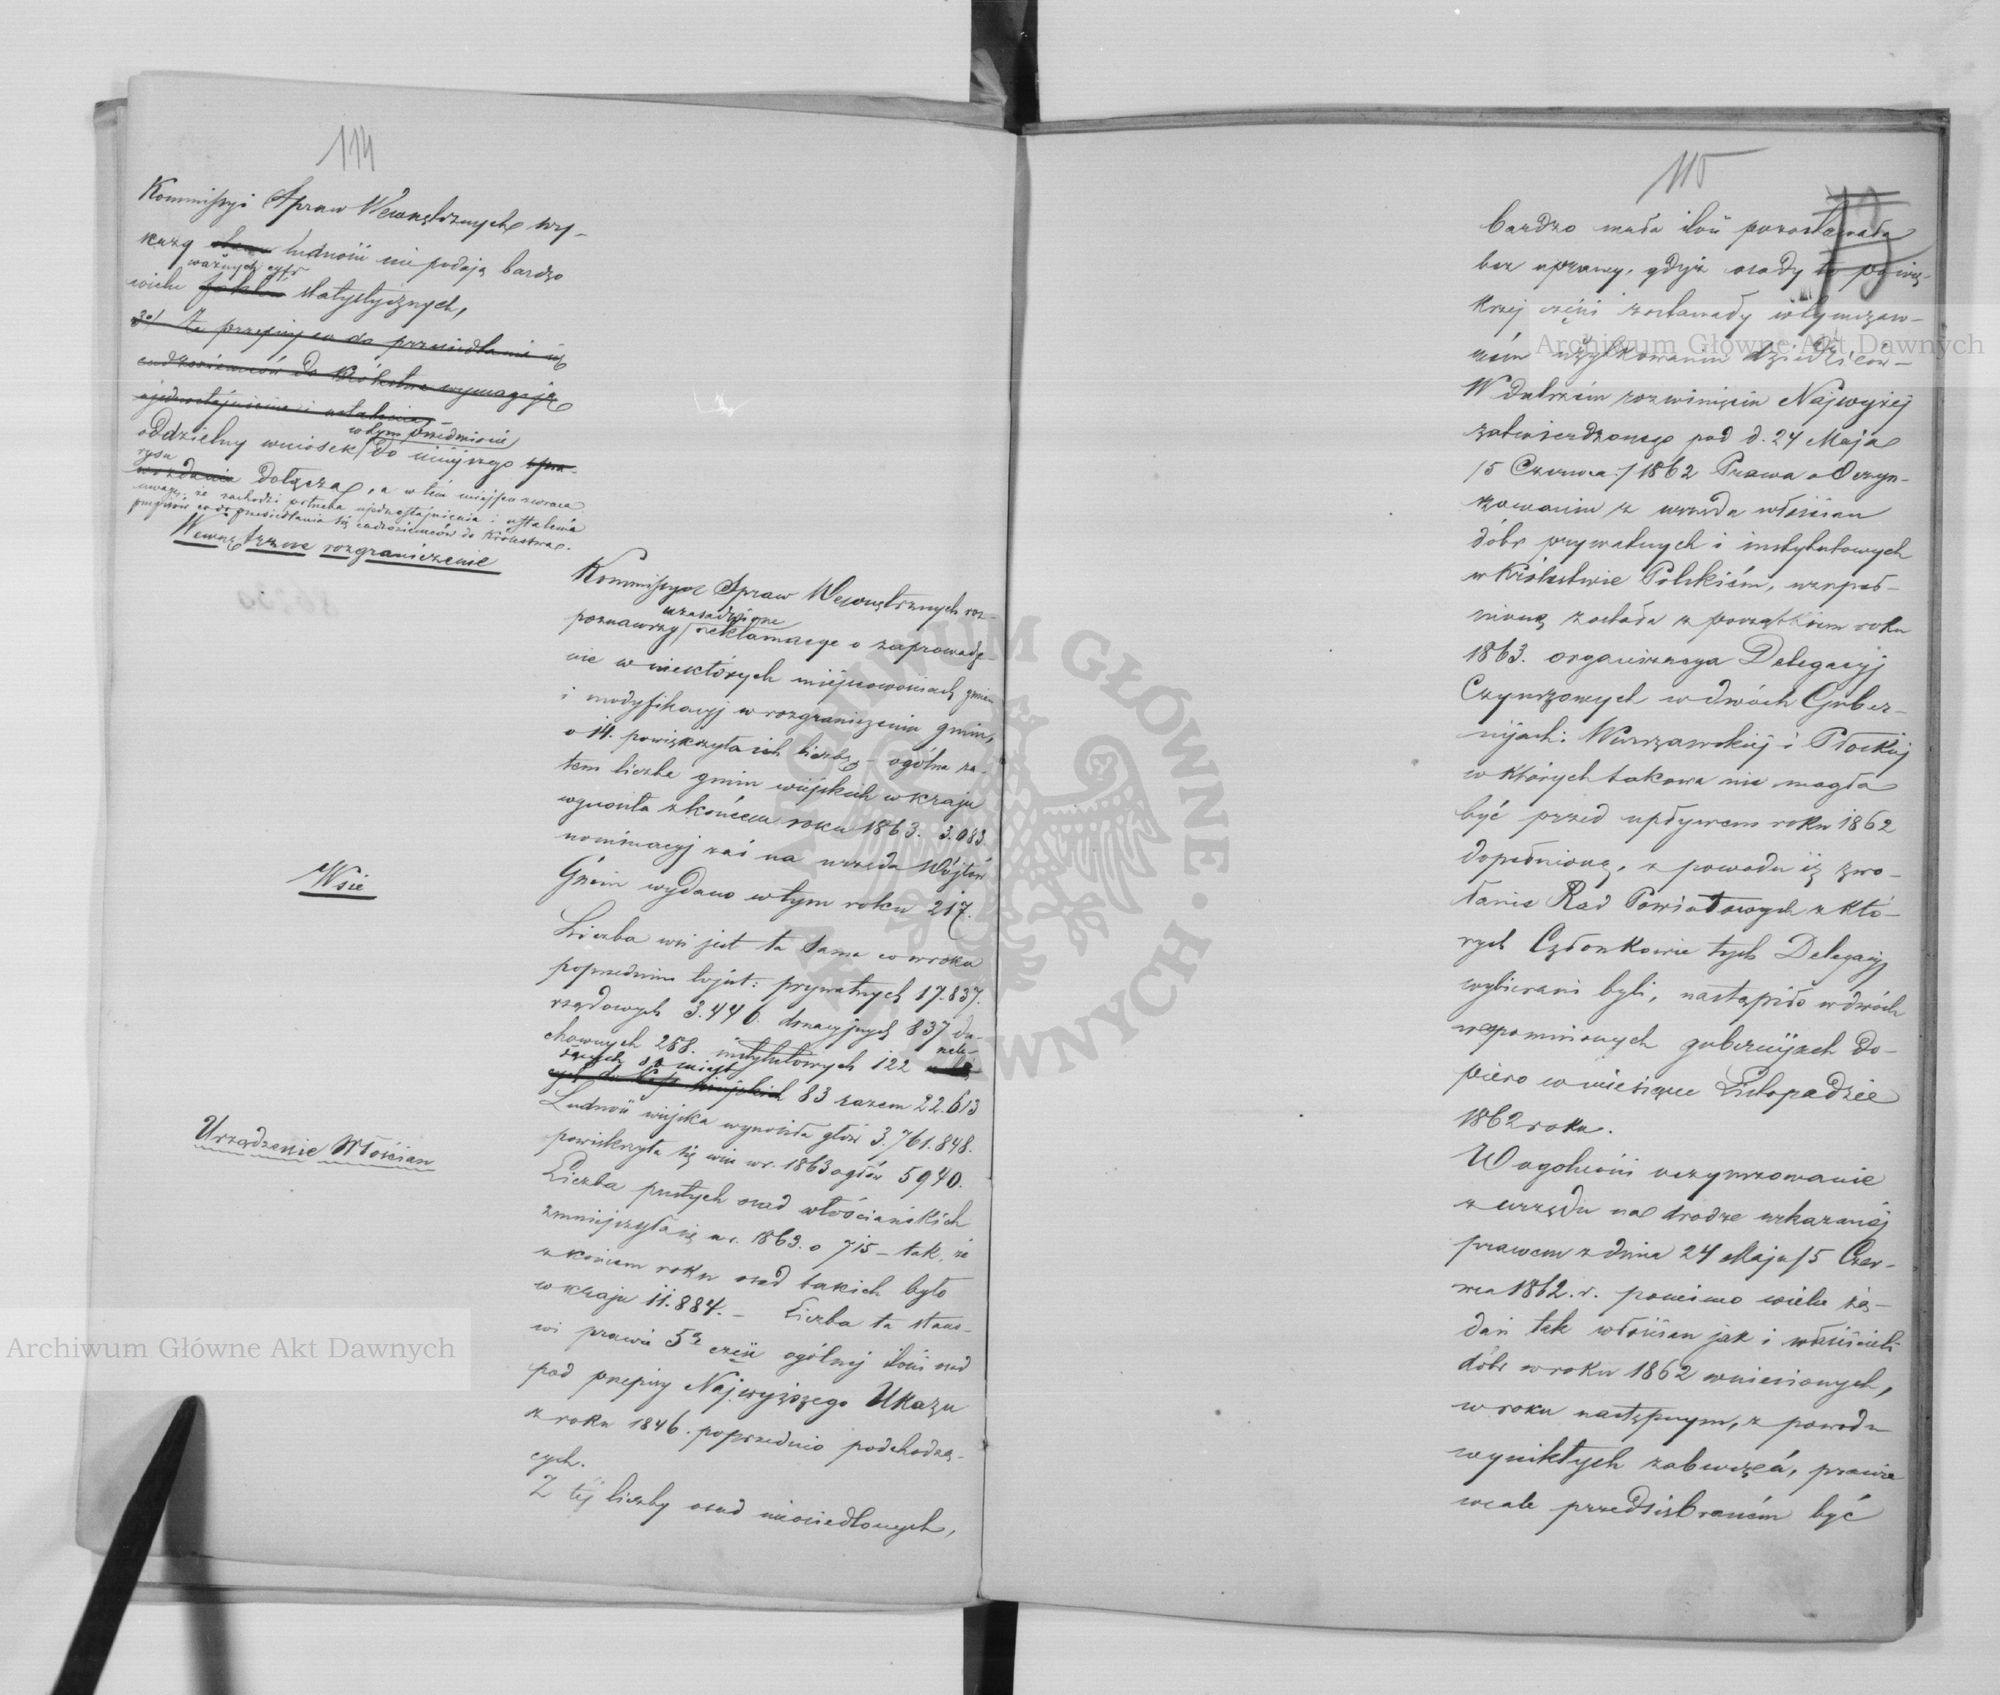 114
Kommissyi Spraw Wewnętrznych wy-
kazy ludności nie podają bardzo
ważnych cyfr
wielu statystycznych,
3o/ Że przepisy co do przesiedlania się
cudzoziemców do Królestwa wymagają
ujednostajnienia i ustalenia
w tym przedmiocie
oddzielny wniosek do niniejszego spra-
rysu
wozdania dołącza, a w tém miejscu zwraca
uwagę, że zachodzi potrzeba ujednostajnienia i ustalenia
przepisów co do przesiedlania się cudzoziemców do Królestwa.
Wewnętrzne rozgraniczenie
Kommissya Spraw Wewnętrznych roz-
uzasadnione
poznawszy reklamacye o zaprowadze-
nie w niektórych miejscowościach gmin
i modyfikacyj w rozgraniczeniu gmin,
o 14. powiększyła ich liczbę – ogólna za-
tem liczba gmin wiejskich w kraju
wynosiła z końcem roku 1863. 3.083.
nominacyj zaś na urzęda Wójtów
Gmin wydano w tym roku 217.
Wsie
Liczba wsi jest ta sama co w roku
poprzednim to jest: prywatnych 17.837.
rządowych 3.446. donacyjnych 837 du-
chownych 288. instytutowych 122 należ-
żących do miast
cych do Kass miejskich 83 razem 22.613
Ludność wiejska wynosiła głów 3.761.848.
powiększyła się więc w r. 1863 o głów 5940.
Urządzenie Włościan
Liczba pustych osad włościańskich
zmniejszyła się w r. 1863. o 715 – tak, że
z końcem roku osad takich było
w kraju 11.884. – Liczba ta stano-
wi prawie 5ą część ogólnej ilości osad
pod przepisy Najwyższego Ukazu
z roku 1846. poprzednio podchodzą-
cych.
Z téj liczby osad nieosiedlonych,
115
73
bardzo mała ilość pozostawała
bez uprawy, gdyż osady te po więk-
kszej części zostawały w tymczaso-
wém użytkowaniu dziedziców –
W dalszém rozwinięciu Najwyżej
zatwierdzonego pod d. 24 Maja
/5 Czerwca/ 1862 Prawa o Oczyn-
szowaniu z urzędu włościan
dóbr prywatnych i instytutowych
w Królestwie Polskiém, uzupeł-
nioną została z początkiem roku
1863. organizacya Delegacyj
Czynszowych w dwóch Guber-
nijach: Warszawskiéj i Płockiéj
w których takowa nie mogła
być przed upływem roku 1862
dopełnioną, z powodu iż zwo-
łanie Rad Powiatowych z któ-
rych Członkowie tych Delegacyj
wybierani byli, nastąpiło w dwóch
wspomnionych gubernijach do-
piero w miesiącu Listopadzie
1862 roku.
W ogólności oczynszowanie
z urzędu na drodze wskazanéj
prawem z dnia 24 Maja /5 Czer-
wca 1862. r. pomimo wielu żą-
dań tak włościan jak i właścicieli
dóbr w roku 1862 wniesionych,
w roku następnym, z powodu
wynikłych zaburzeń, prawie
wcale przedsiębraném być
Archiwum Główne Akt Dawnych
Archiwum Główne Akt Dawnych
ARCHIWUM GŁÓWNE AKT DAWNYCH